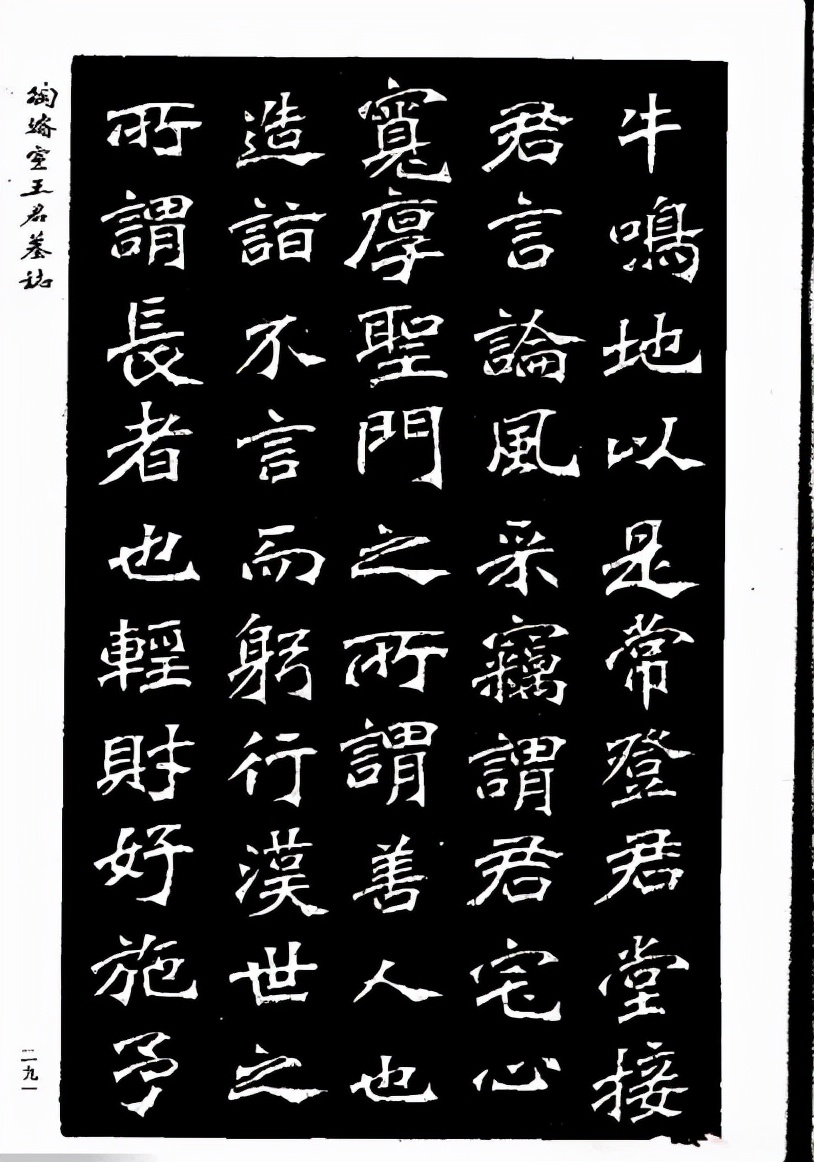 牛鳴地以是常登君堂接
君言論風采竊謂君宅心
寬厚聖門之所謂善人也
造詣不言而躬行漢世之
所謂長者也輕財好施予
陶齋室王君墓誌
二九一